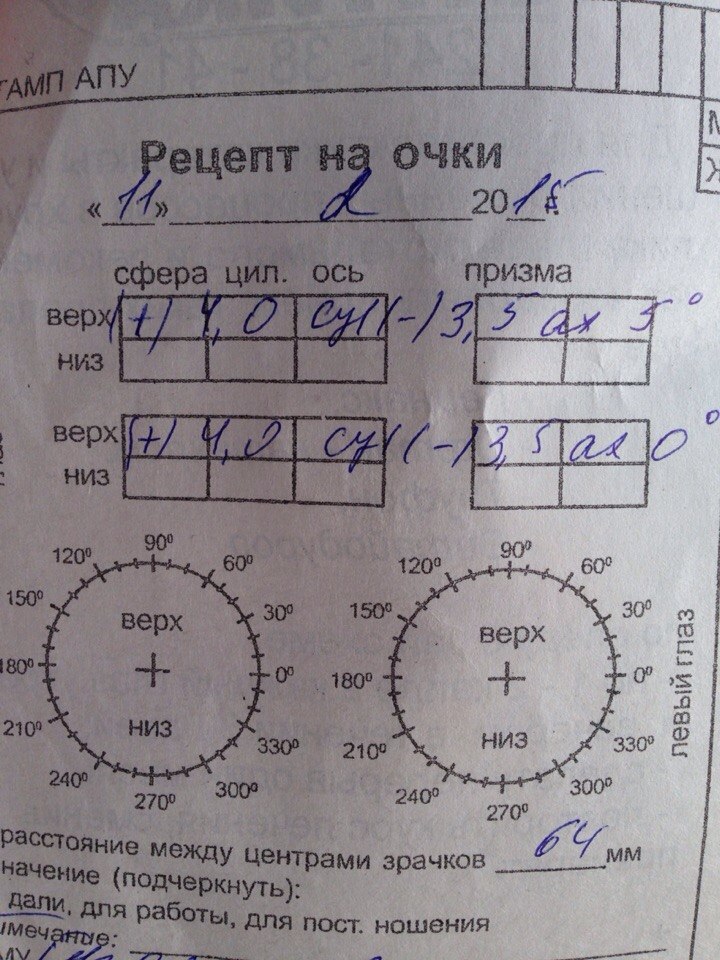 ТАМП АПУ
Рецепт на очки
« 11 » 2 2015 г.
сфера цил. ось призма
верх (+) 4,0 cyl (-) 3,5 ax 5°
низ
верх (+) 4,0 cyl (-) 3,5 ax 0°
низ
90⁰ 120⁰ 60⁰ 150⁰ 30⁰ 180⁰ 0⁰ 210⁰ 330⁰ 240⁰ 300⁰ 270⁰
верх
низ
90⁰ 120⁰ 60⁰ 150⁰ 30⁰ 180⁰ 0⁰ 210⁰ 330⁰ 240⁰ 300⁰ 270⁰
верх
низ
левый глаз
расстояние между центрами зрачков 64 мм
начение (подчеркнуть):
дали, для работы, для пост. ношения
имечание: